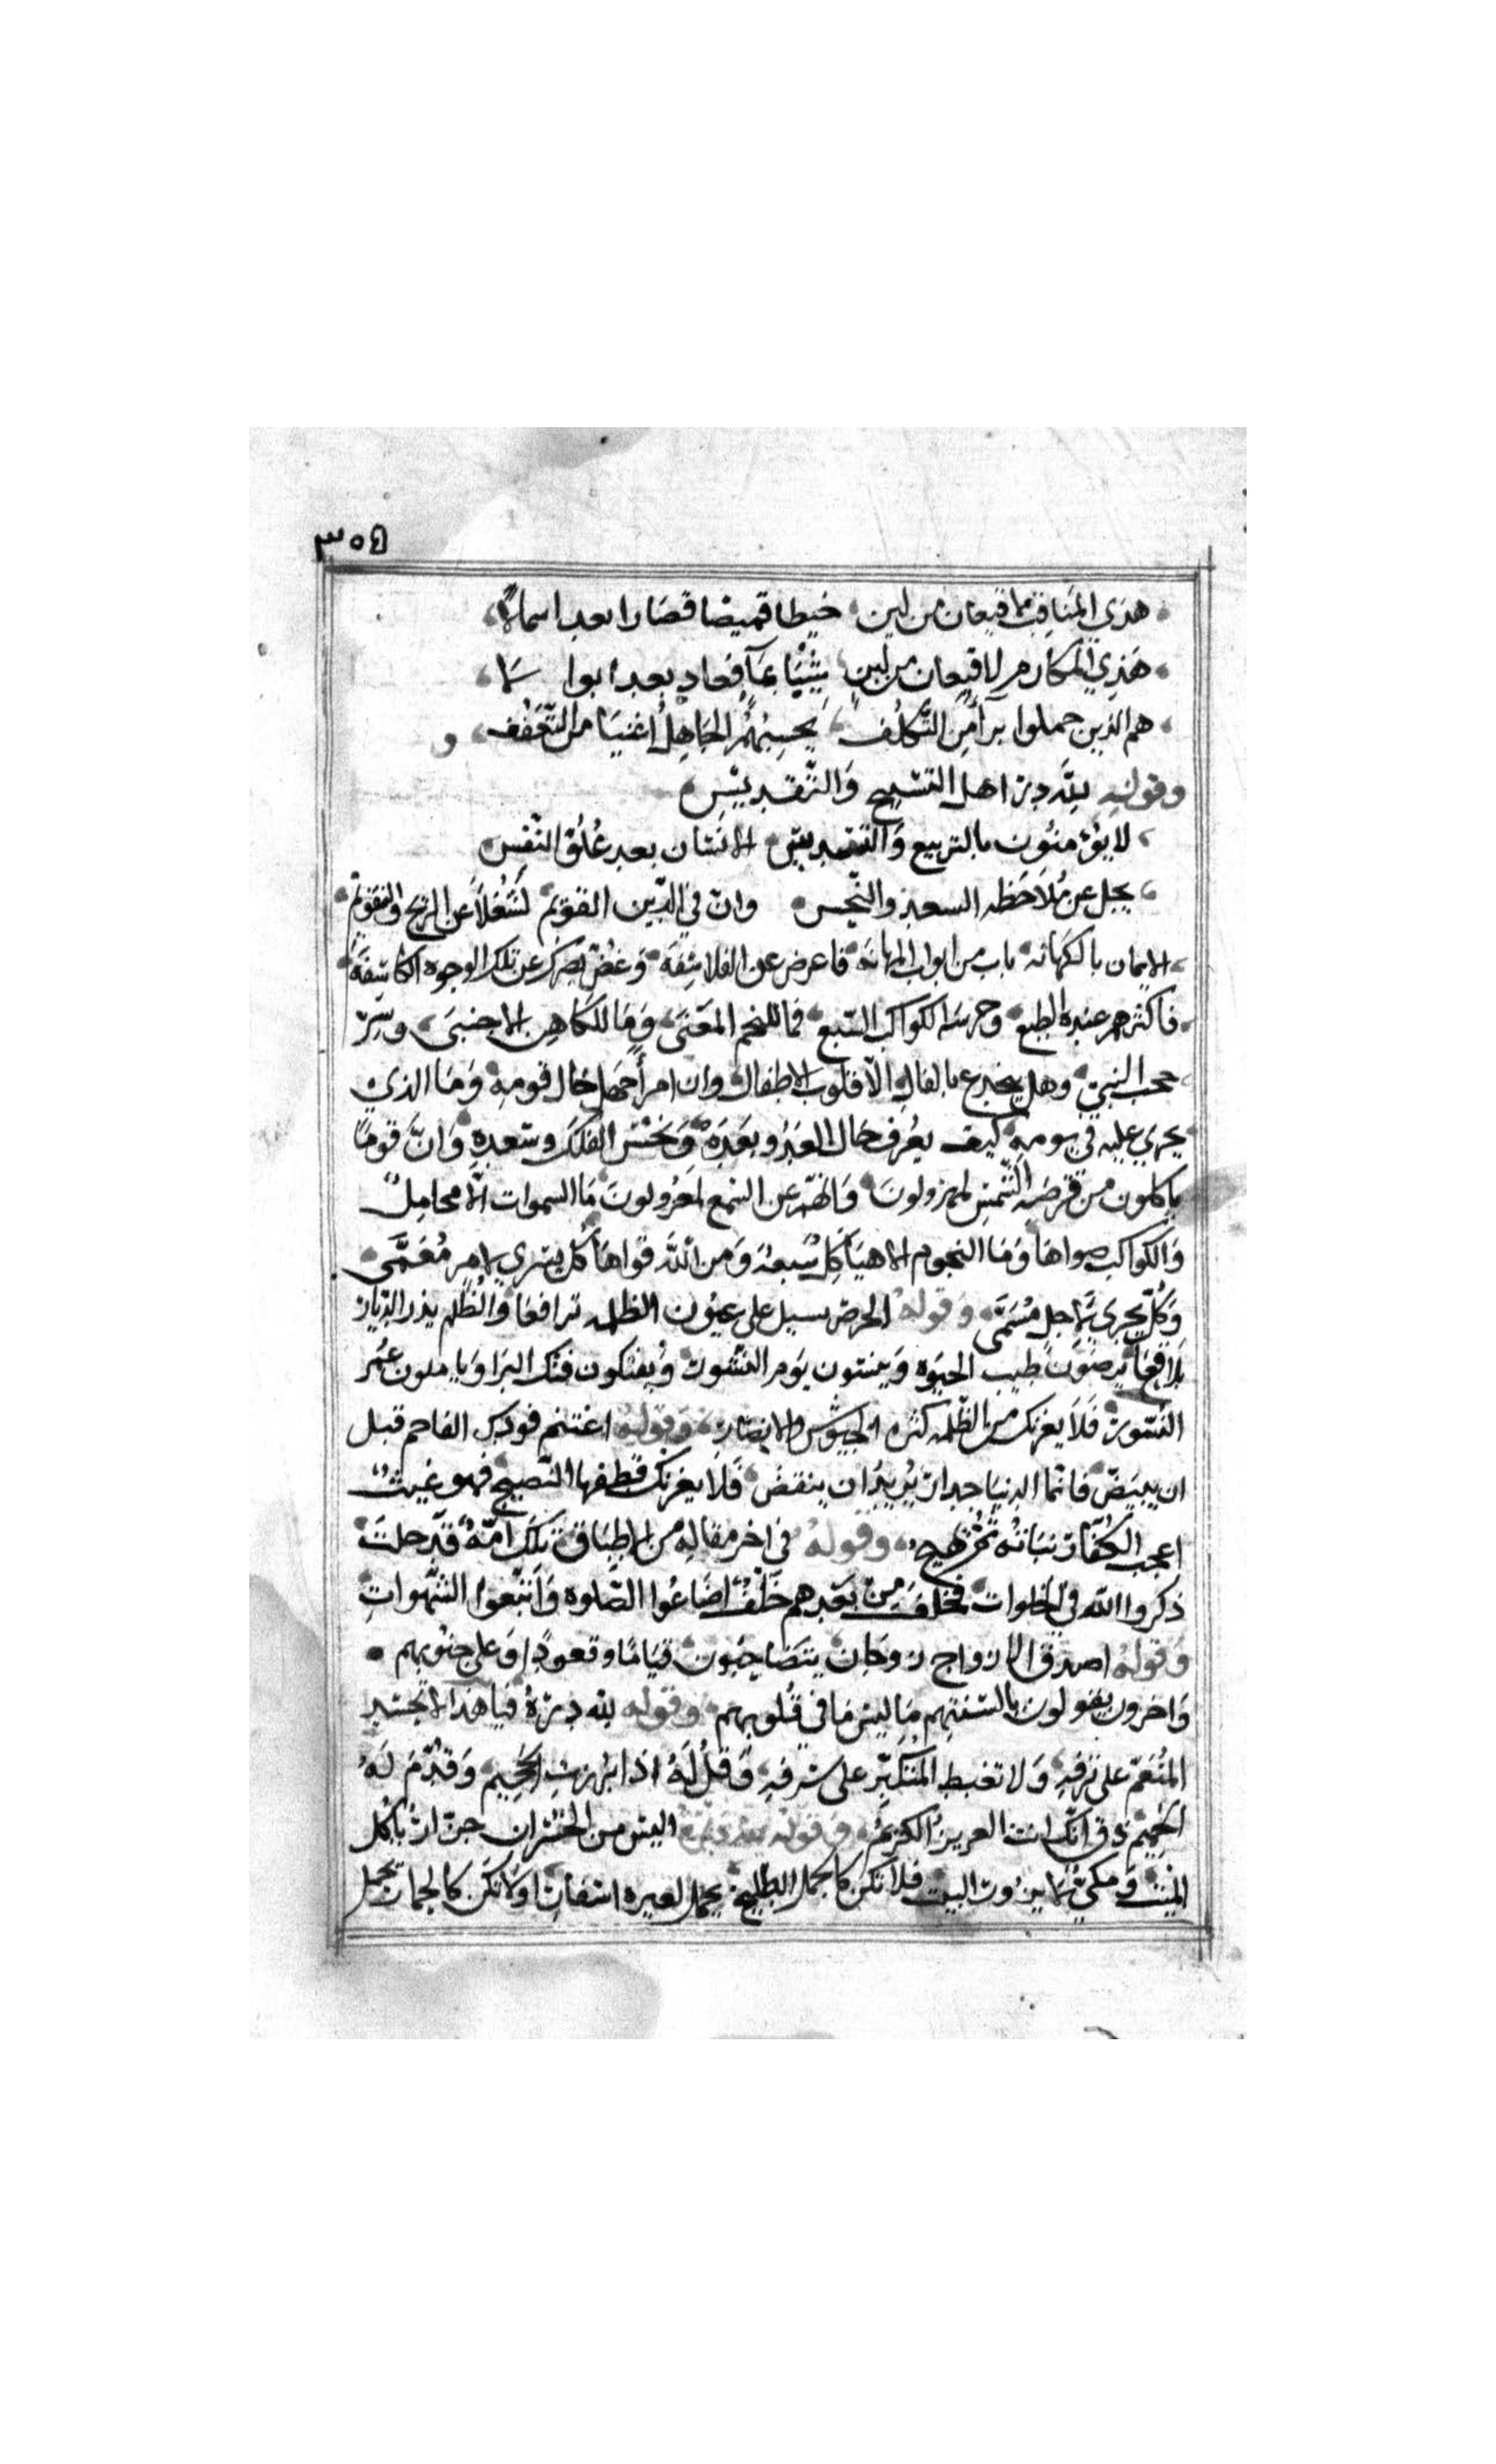 ٣٥٤
هذي المناقب لا قيعان من لبن خيطا قميصا فصارا بعد اسمالا
هذي المكارم لا قعبان من لبن شيبا بماء فعاد بعد ابوالا
هم الذين حملوا من التكلف يحسبهم الجاهل اغنيا من التعفف و
وقوله لله در اهل التسبيح والتقديس
لا يؤمنون بالتربيع والتسديس الانسان بعد علو النفس
يجل عن ملاحظه السعد والنحس وان في الدين القويم لشغلا عن الزيج والتقويم
الايمان بالكهانه باب من ابواب المهانه فاعرض عن الفلاسفه وغض بصرك عن تلك الوجوه الكاسفه
فاكثرهم عبده الطبع وحرسه الكواكب السبع فما للنجم المعنى وما للكاهن الاجنبي وسر
حجب النبي وهل ينخدع بالفال الا قلوب الاطفال وان امرأ جهل حال قومه وما الذي
يجري عليه في يومه كيف يعرف حال الغد وبعده ونحس الفلك وسعده وان قوما
ياكلون من قرصه الشمس لمهزولون وانهم عن السمع لمعزولون ما السموات الا محامل
والكواكب صواها وما النجوم الا هياكل سبعه ومن الله قواها كل يسري لامر معمى
وكل يجري لاجل مسمى وقوله الحرض يسيل على عيون الظلمه ترافعا والظلم يذر الديار
بلاقعا يرضون طيب الحيوه وينسون يوم النشور ويفتكون فتك البزا وياملون عمر
النسور فلا يغرنك من الظلمه كثره الجيوش والانصار وقوله اغتنم فودك الفاحم قبل
ان يبيض فانما الدنيا جدار يريد ان ينقض فلا يغرنك قطفها النضيج فهو غيث
اعجب الكفار نباته ثم يهيج وقوله في اخر مقاله من الاطباق تلك امه قد خلت
ذكروا الله في الخلوات فخلف من بعدهم خلف اضاعوا الصلوه واتبعوا الشهوات
وقوله اصدق الازواج زوجان يتضاحبون قياما وقعودا وعلى جنوبهم
واخرون يقولون بالسنتهم ما ليس ما في قلوبهم وقوله لله دره فيا هذا لا تحسد
المنعم على ترفه ولا تغبط المتكبر على شرفه وقل له اذا برزت الجحيم وقدم له
الحميم ذق انك انت العزيز الكريم وقوله لله دره اليس من الخسران جزار ياكل
الميت ومكي لا يزور البيت فلا تكن كالجمل الطليح يحمل لغيره اسفارا ولا تكن كالحمار يحمل